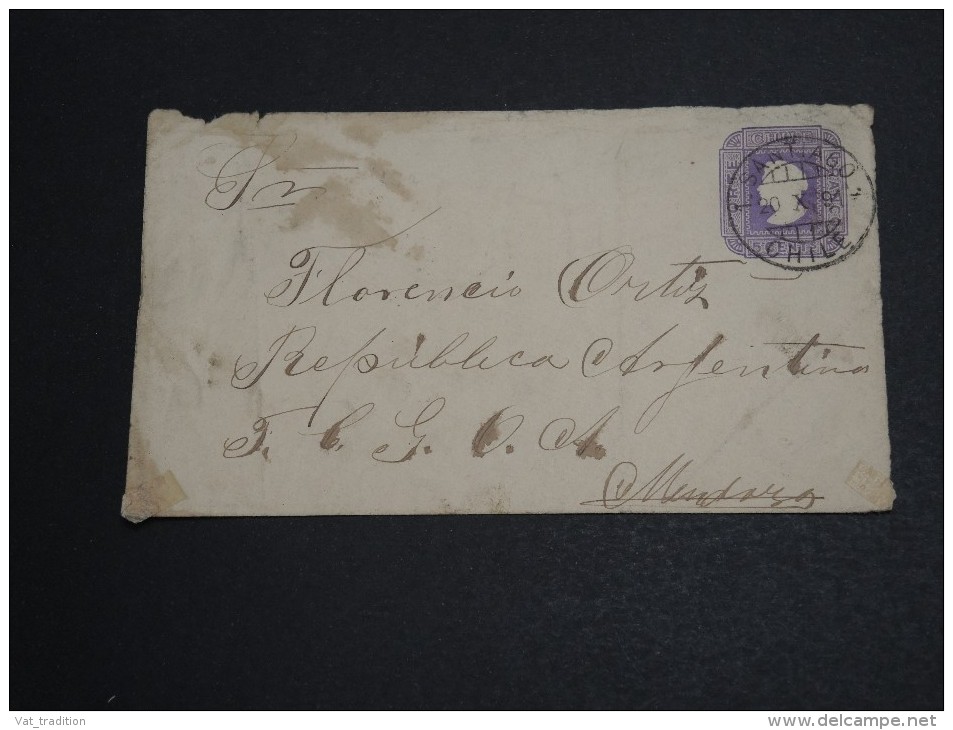 Sr
Florencio Ortiz
República Argentina
F. C. G. O. A.
Mendoza
SANTIAGO
20 X
CHILE
Vat_tradition
www.delcampe.net